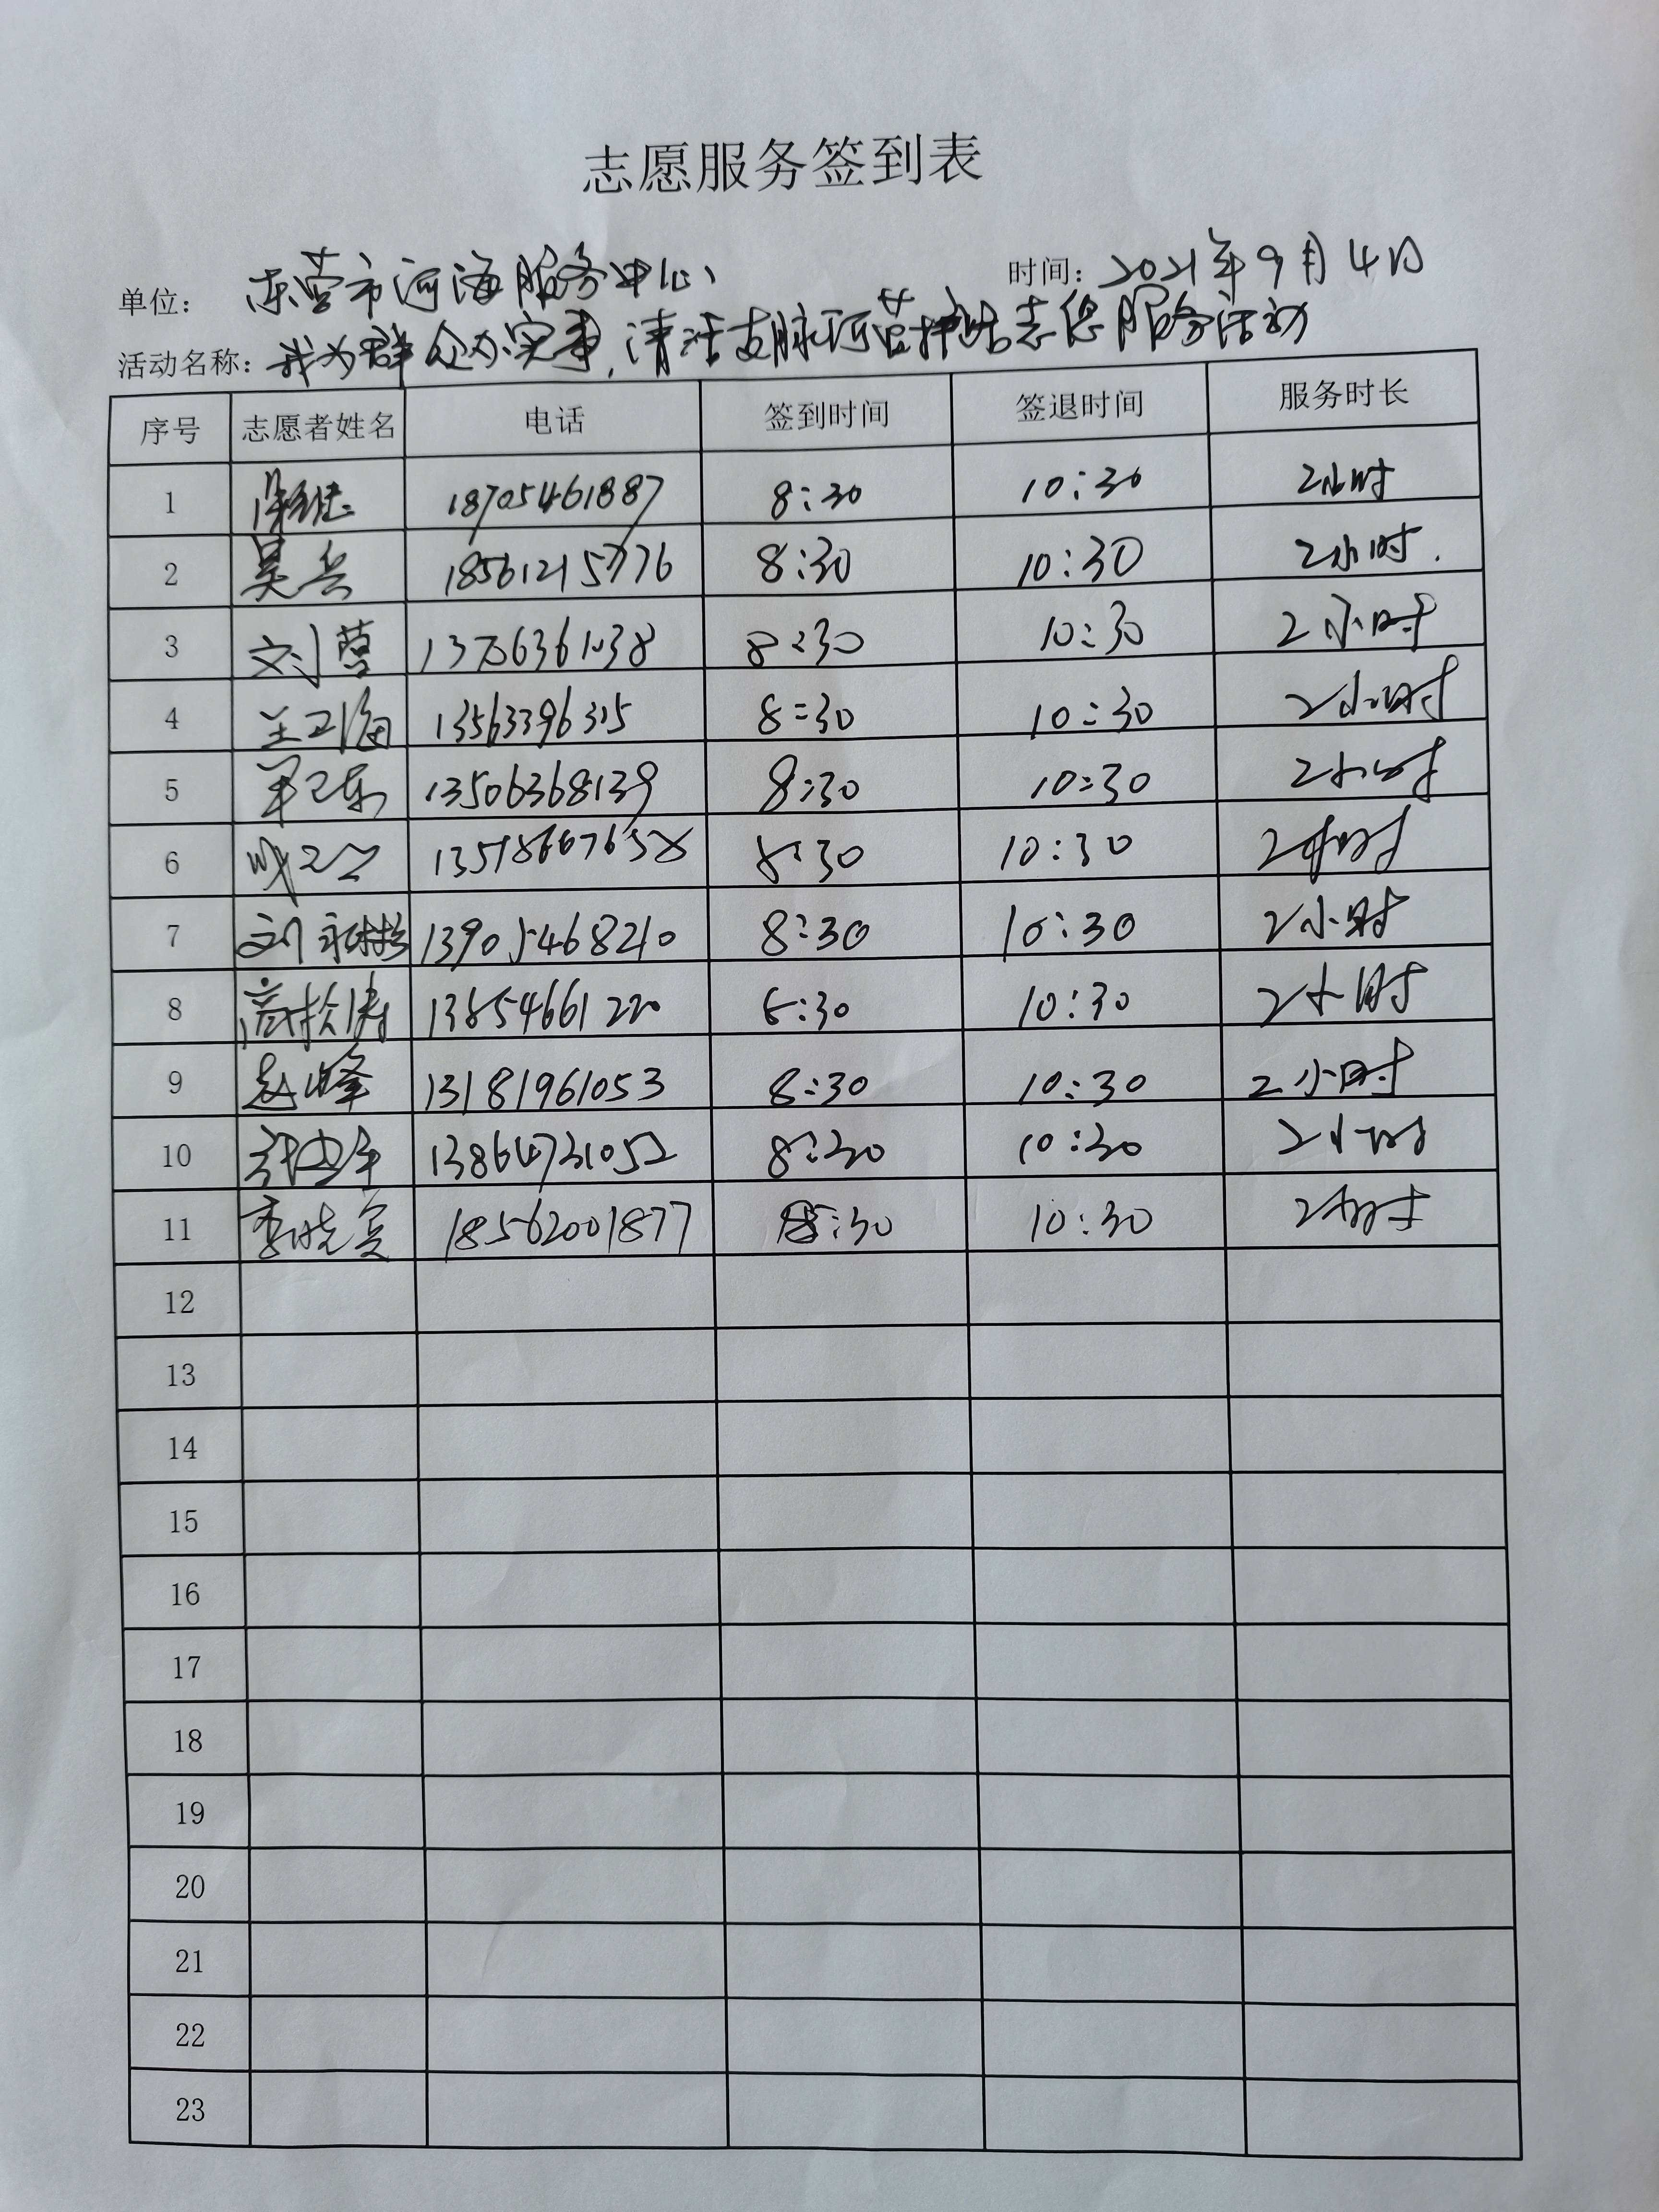 志愿服务签到表
单位： 东营市河海服务中心 时间：2021年9月4日
活动名称：我为群众办实事，清洁支脉河 志愿服务活动
序号 志愿者姓名 电话 签到时间 签退时间 服务时长
1 18705461887 8:30 10:30 2小时
2 吴兵 18561215776 8:30 10:30 2小时.
3 刘营 8:30 10:30 2小时
4 王卫海 13563396315 8:30 10:30 2小时
5 13506368139 8:30 10:30 2小时
6 8:30 10:30 2小时
7 13905468210 8:30 10:30 2小时
8 高松涛 13854661220 8:30 10:30 2小时
9 赵峰 13181961053 8:30 10:30 2小时
10 13864731052 8:30 10:30 2小时
11 18562001877 8:30 10:30 2小时
12
13
14
15
16
17
18
19
20
21
22
23